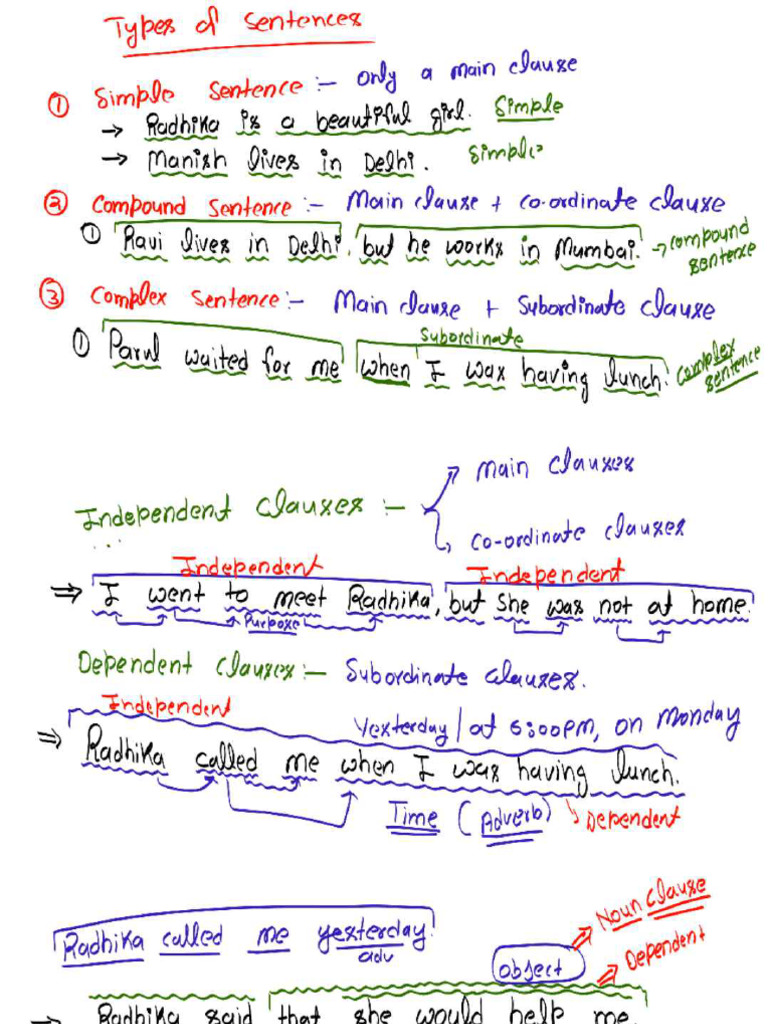 Types of Sentences
① Simple Sentence :- only a main clause
→ Radhika is a beautiful girl. Simple
→ Manish lives in Delhi. Simple
② Compound Sentence :- Main clause + co-ordinate clause
① Ravi lives in Delhi, but he works in Mumbai. → compound sentence
③ Complex Sentence :- Main clause + Subordinate clause
Subordinate
① Parul waited for me when I was having lunch. complex sentence
Main clauses
Independent clauses :-
co-ordinate clauses
Independent Independent
⇒ I went to meet Radhika, but she was not at home.
Purpose
Dependent clauses :- Subordinate clauses.
Independent
Yesterday / at 5:00PM, on Monday
⇒ Radhika called me when I was having lunch.
Time (Adverb) Dependent
Noun clause
Radhika called me yesterday.
adv
Dependent
object
⇒ Radhika said that she would help me.